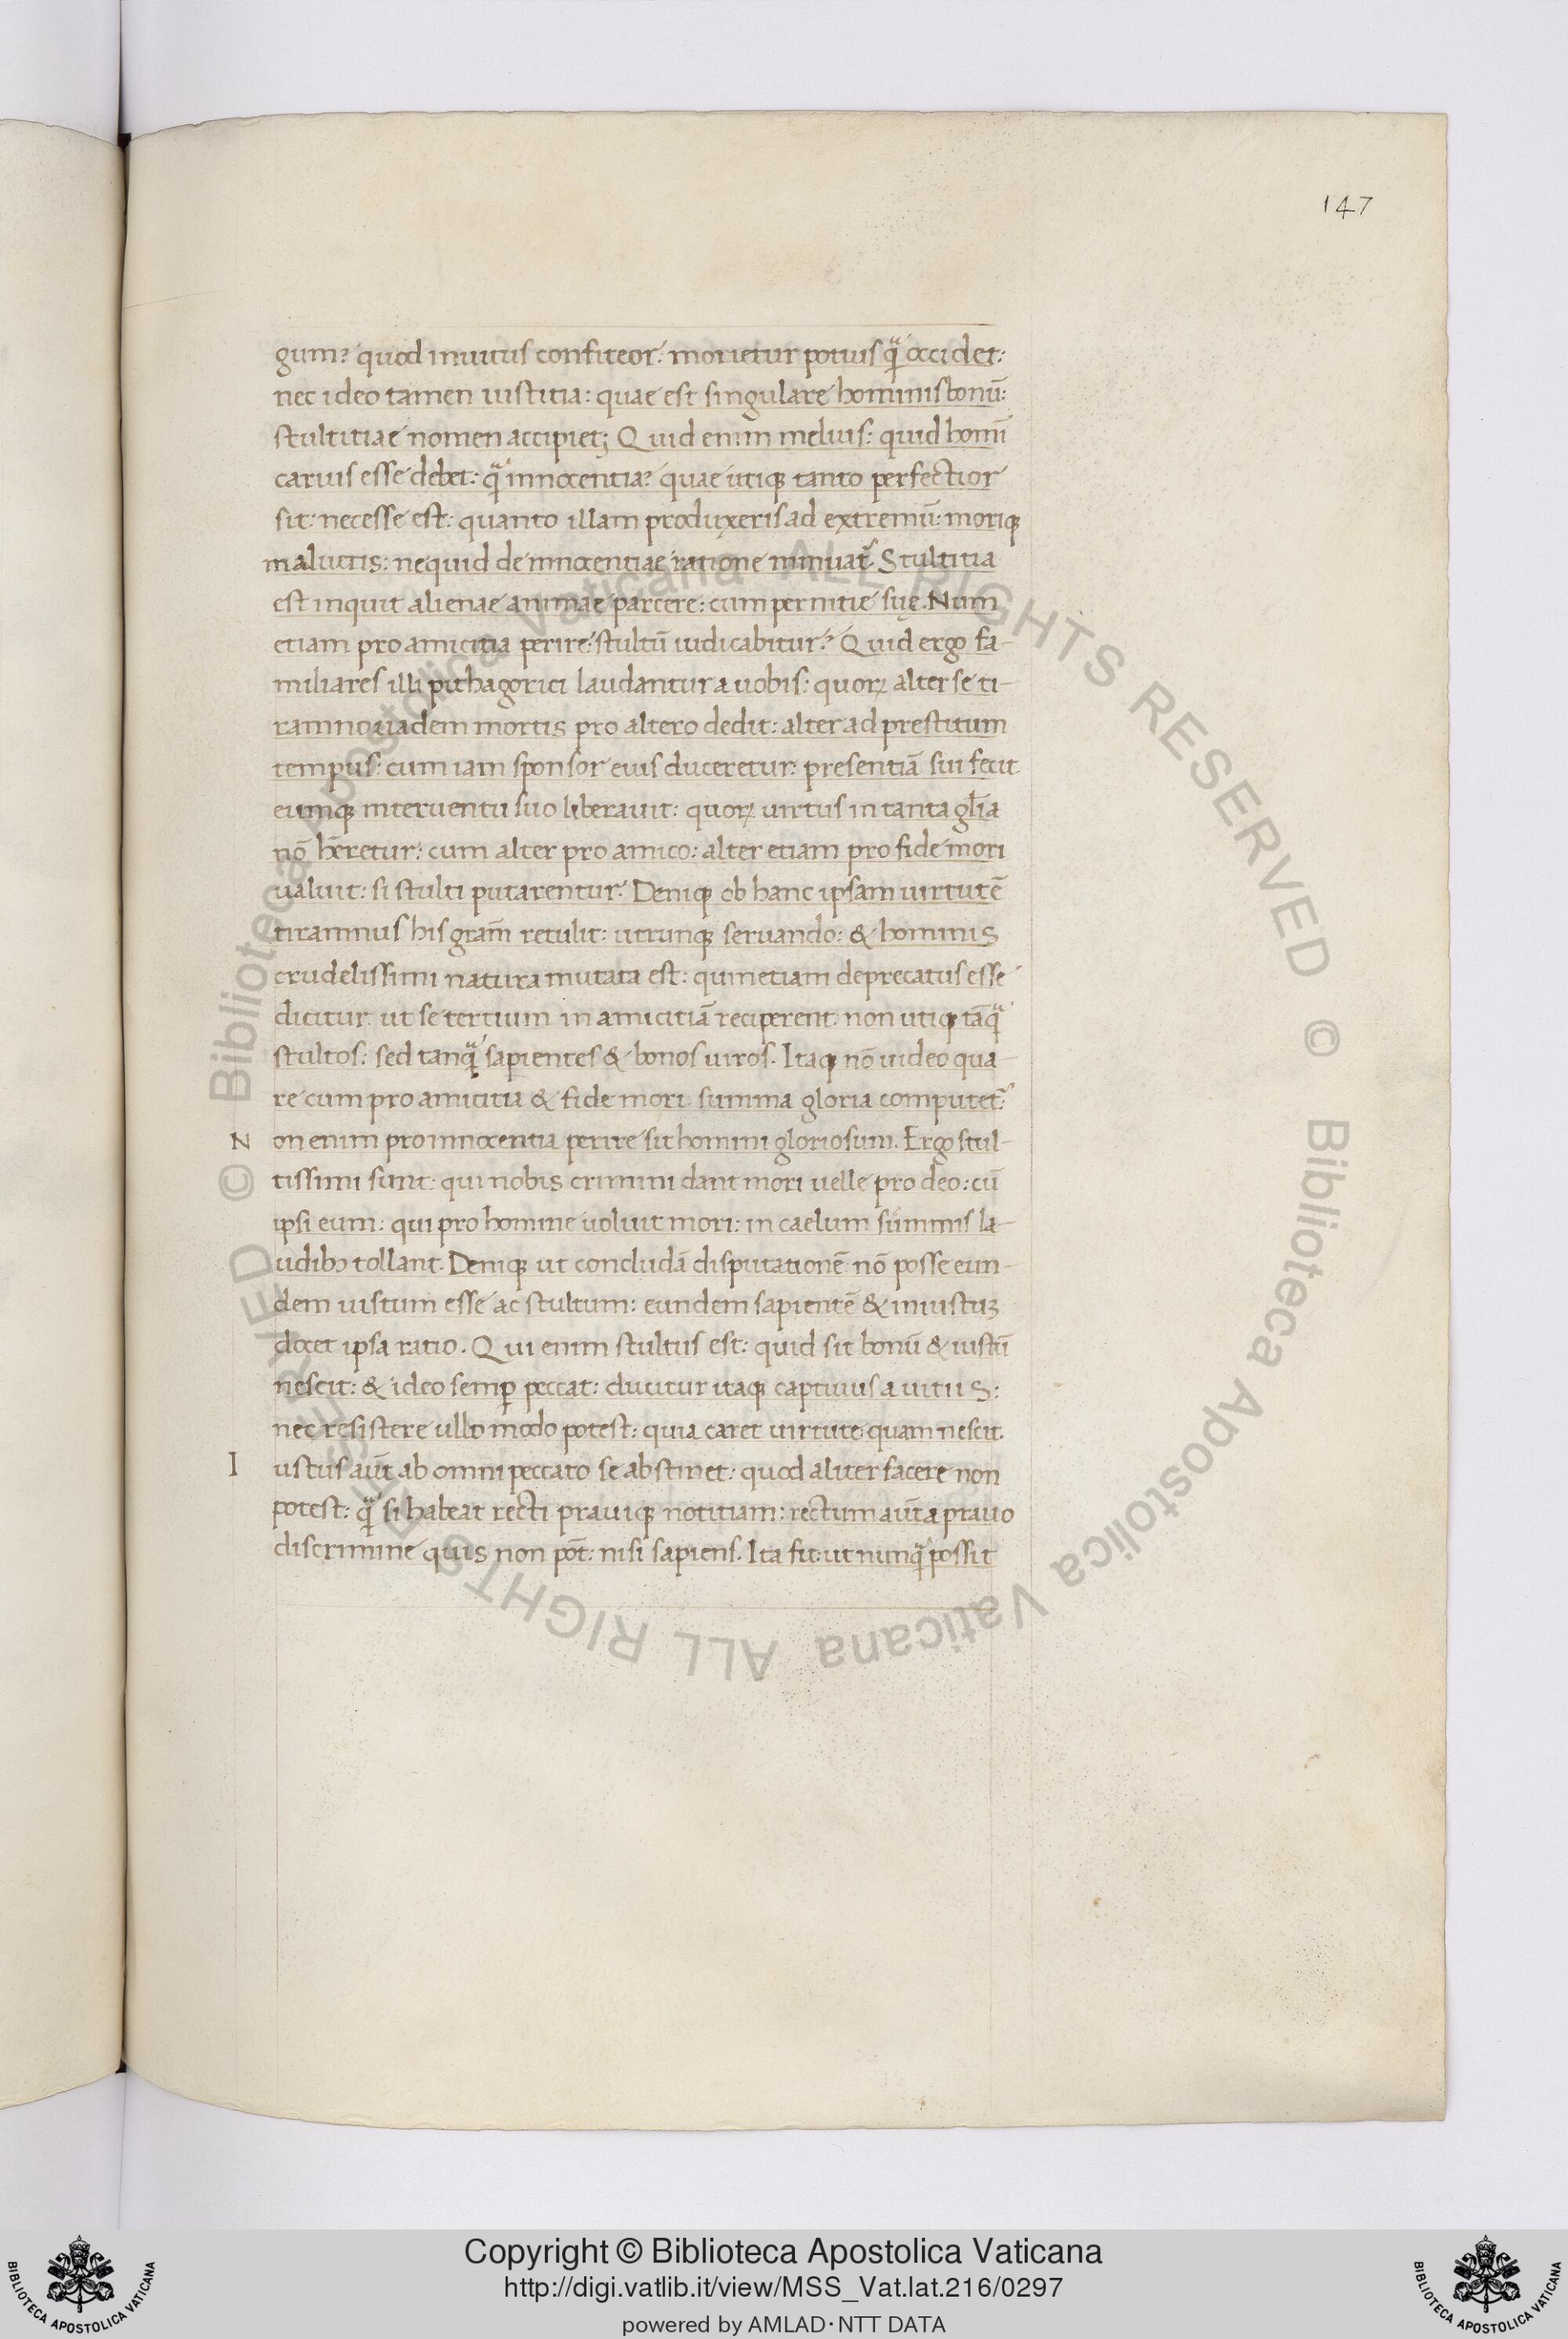 147
gum? quod inuitus confiteor: morietur potius q̃ occidet:
nec ideo tamen iustitia: quae est singulare hominis bonū:
stultitiae nomen accipiet; Quid enim melius: quid homī
carius esse debet: q̃ innocentia? quae utiqꝫ tanto perfectior
sit necesse est: quanto illam produxeris ad extremū: moriqꝫ
maluctis: nequid de innocentiae ratione minuat᷑. Stultitia
est inquit alienae animae parcere: cum pernitie suę. Num
etiam pro amicitia perire: stultū iudicabitur? Quid ergo fa-
miliares illi pithagorici laudantur a uobis: quoꝝ alter se ti-
ramno uadem mortis pro altero dedit: alter ad prestitum
tempus: cum iam sponsor eius duceretur: presentiā sui fecit
eumqꝫ interuentu suo liberauit: quoꝝ uirtus in tanta gl̄ia
nō hēretur: cum alter pro amico: alter etiam pro fide mori
ualuit: si stulti putarentur. Deniqꝫ ob hanc ipsam uirtutē
tiramnus his gram̄ retulit: utrunqꝫ seruando: & hominis
crudelissimi natura mutata est: quinetiam deprecatus esse
dicitur ut se tertium in amicitiā reciperent. non utiqꝫ tāq̃
stultos: sed tanq̃ sapientes & bonos uiros. Itaqꝫ nō uideo qua-
re cum pro amicitia & fide mori summa gloria computet᷑:
N on enim pro innocentia perire sit homini gloriosum. Ergo stul-
tissimi sunt: qui nobis crimini dant mori uelle pro deo: cū
ipsi eum: qui pro homine uoluit mori: in caelum summis la-
udibꝫ tollant. Deniqꝫ ut concludā disputationē nō posse eun-
dem iustum esse ac stultum: eundem sapientē & iniustuꝫ
docet ipsa ratio. Qui enim stultus est: quid sit bonū & iustū
nescit: & ideo semꝑ peccat: ducitur itaqꝫ captiuus a uitiis:
nec resistere ullo modo potest: quia caret uirtute quam nescit.
I ustus aūt ab omni peccato se abstinet: quod aliter facere non
potest: q̃ si habeat recti prauiqꝫ notitiam: rectum aūt a prauo
discrimine quis non pōt: nisi sapiens. Ita fit: ut nunq̃ possit
© Biblioteca Apostolica Vaticana ALL RIGHTS RESERVED © Biblioteca Apostolica Vaticana ALL RIGHTS RESERVED
Copyright © Biblioteca Apostolica Vaticana
http://digi.vatlib.it/view/MSS_Vat.lat.216/0297
powered by AMLAD·NTT DATA
BIBLIOTECA APOSTOLICA VATICANA
BIBLIOTECA APOSTOLICA VATICANA